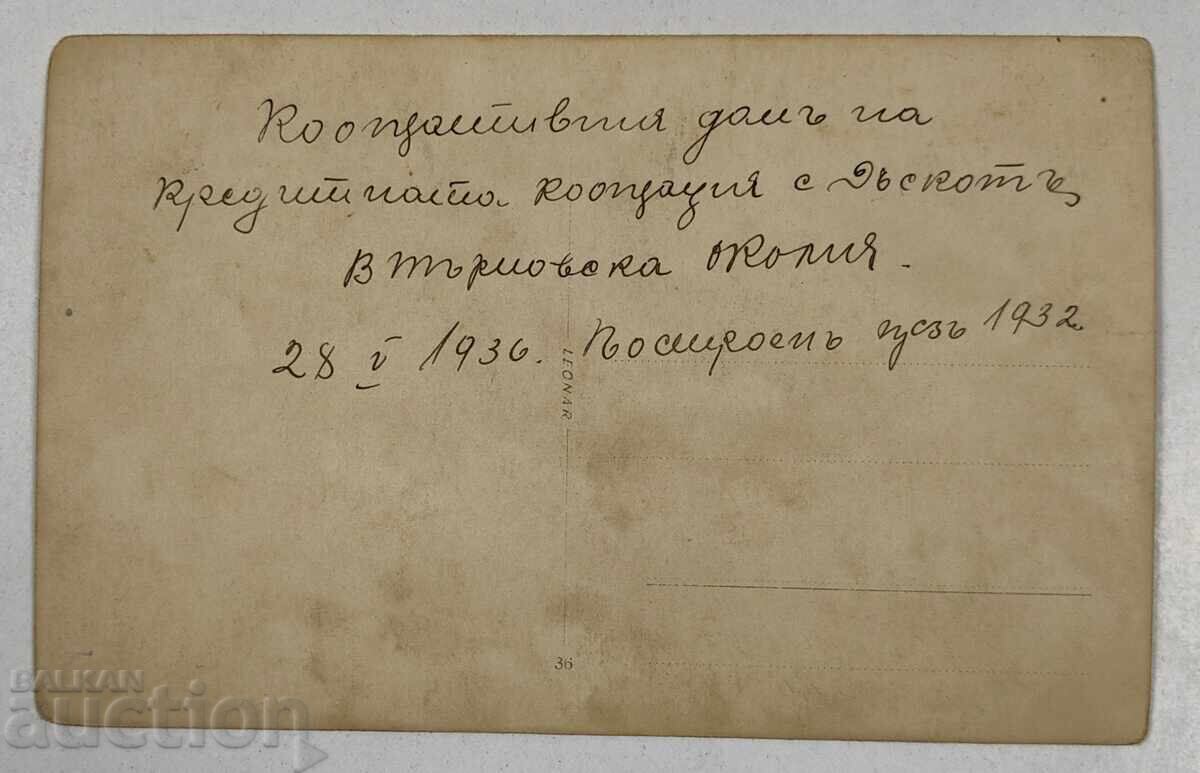 Кооперативния домъ на
кредитната кооперация с Дъскотъ,
В Търновска околия.
28 V 1936. Построенъ презъ 1932.
LEONAR
36
BALKAN
auction